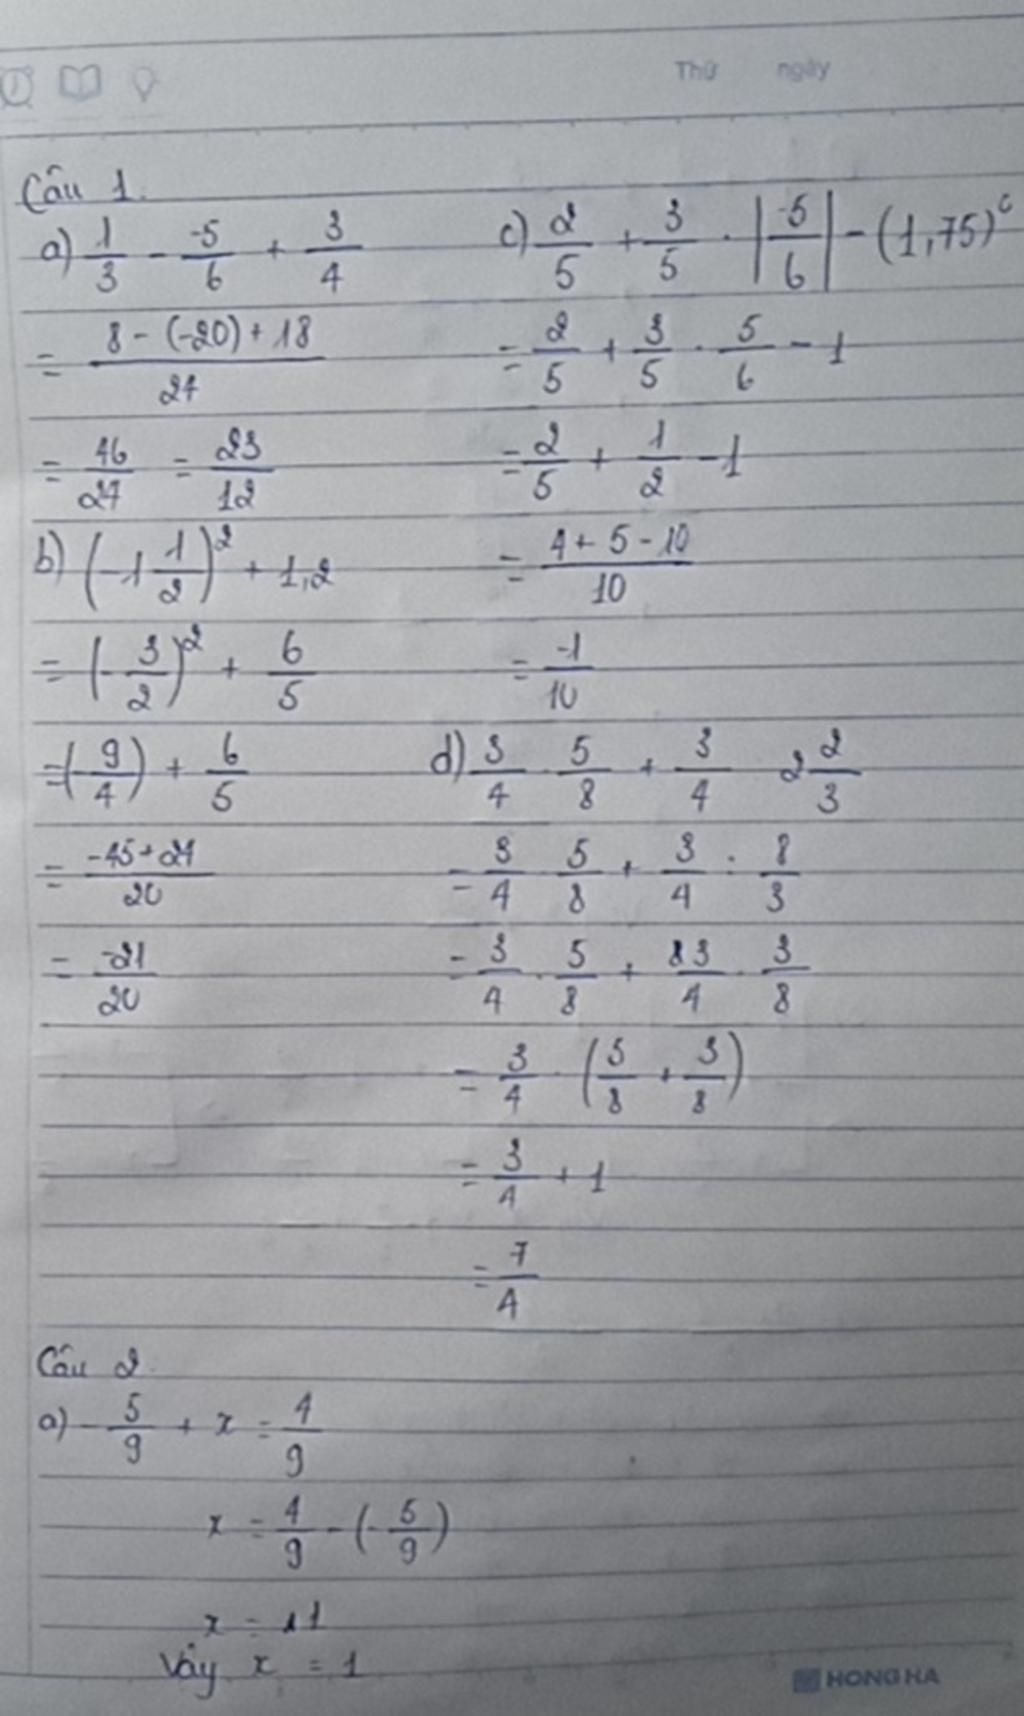 Thứ ngày
Câu 1.
a) 1/3 - -5/6 + 3/4
= (8 - (-20) + 18)/24
= 46/24 = 23/12
b) (-1 1/2)² + 1,2
= (-3/2)² + 6/5
= (-9/4) + 6/5
= (-45 + 24)/20
= -21/20
c) 2/5 + 3/5 . |-5/6| - (1,75)⁰
= 2/5 + 3/5 . 5/6 - 1
= 2/5 + 1/2 - 1
= (4 + 5 - 10)/10
= -1/10
d) 3/4 . 5/8 + 3/4 2 2/3
= 3/4 5/8 + 3/4 : 8/3
= 3/4 . 5/8 + 3/4 . 3/8
= 3/4 . (5/8 + 3/8)
= 3/4 + 1
= 7/4
Câu 2.
a) -5/9 + x = 4/9
x = 4/9 - (-5/9)
x = 1
Vậy x = 1
HONG HA